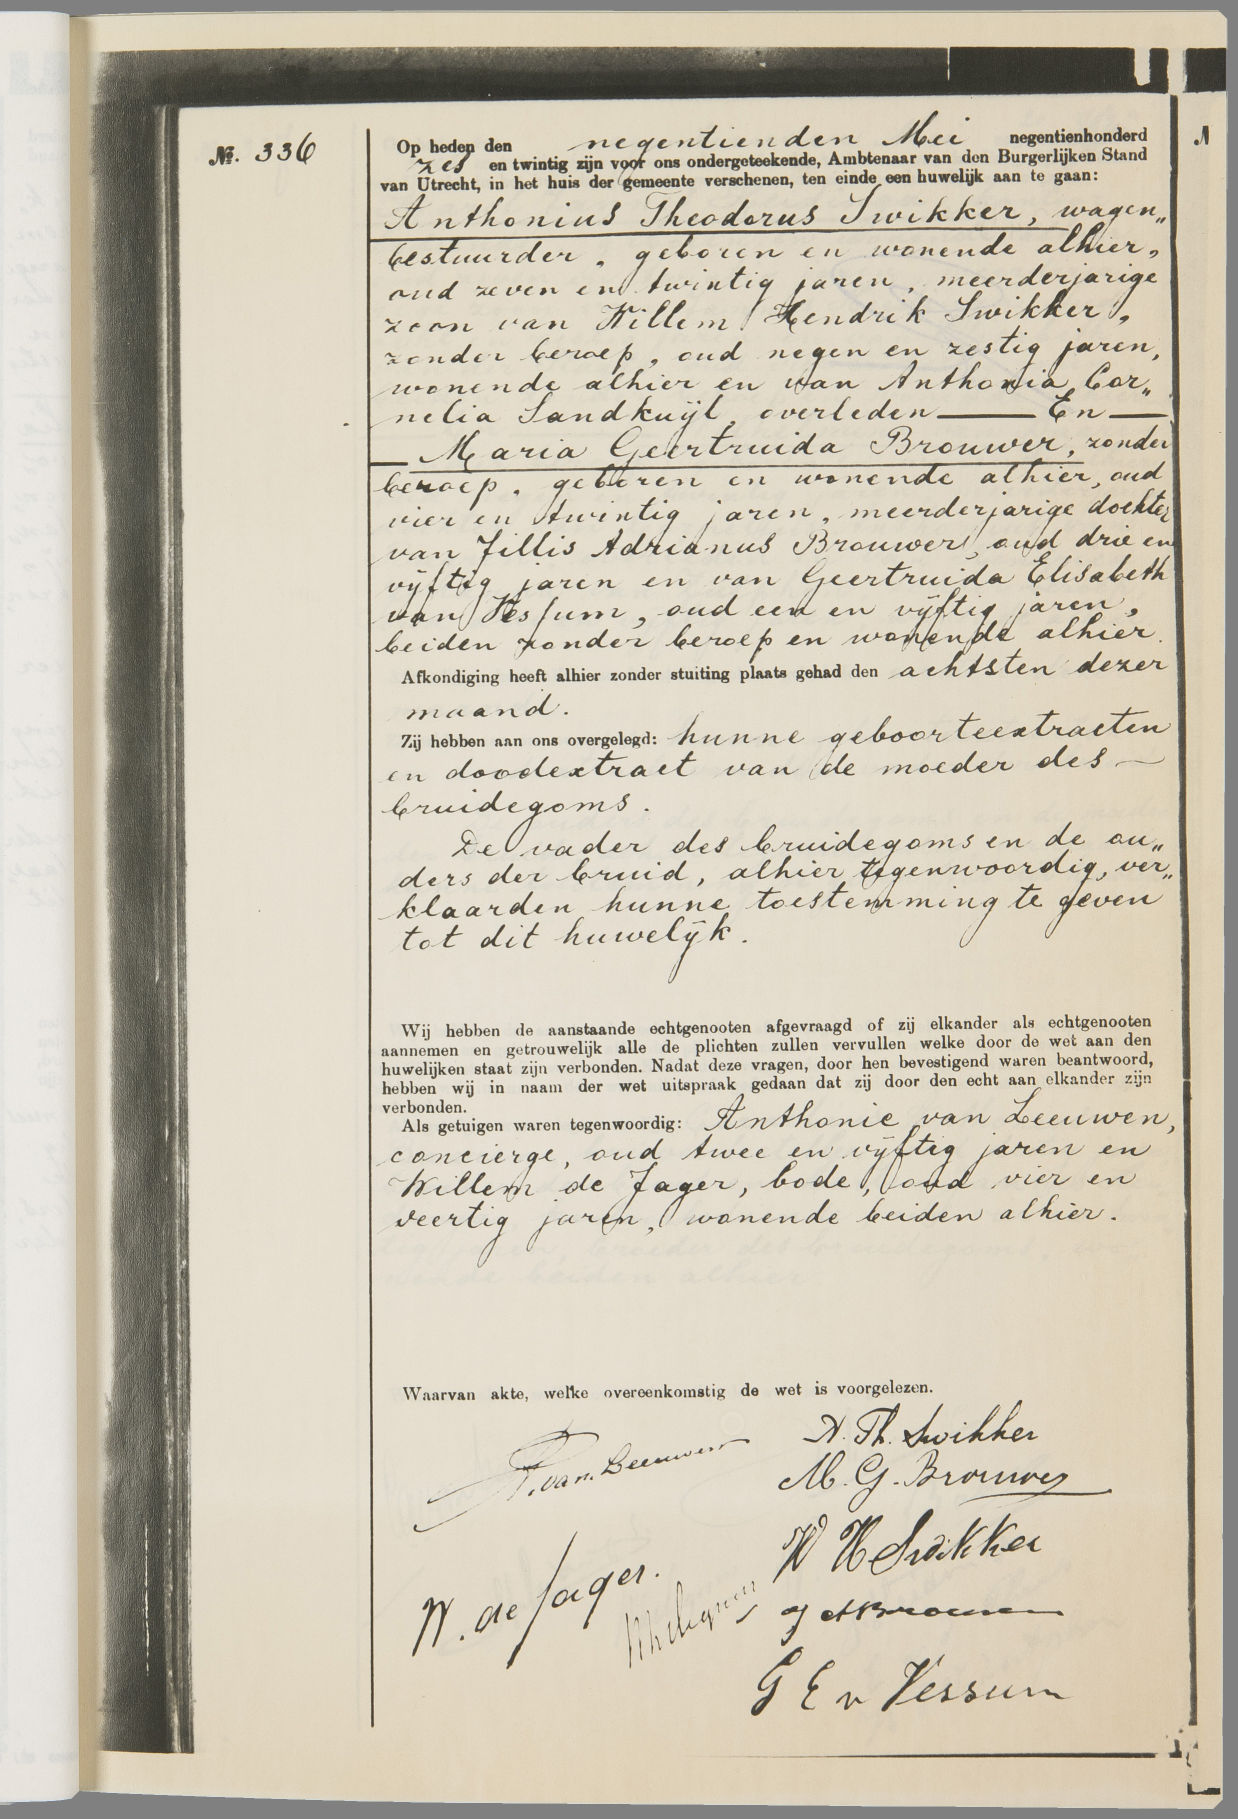 No. 336
Op heden den negentienden Mei negentienhonderd
zes en twintig zijn voor ons ondergeteekende, Ambtenaar van den Burgerlijken Stand
van Utrecht, in het huis der gemeente verschenen, ten einde een huwelijk aan te gaan:
Anthonius Theodorus Swikker, wagen„
bestuurder, geboren en wonende alhier,
oud zeven en twintig jaren, meerderjarige
zoon van Willem Hendrik Swikker,
zonder beroep, oud negen en zestig jaren,
wonende alhier en van Anthonia Cor„
nelia Sandkuijl, overleden — En —
— Maria Geertruida Brouwer, zonder
beroep, geboren en wonende alhier, oud
vier en twintig jaren, meerderjarige dochter
van Jillis Adrianus Brouwer, oud drie en
vijftig jaren en van Geertruida Elisabeth
van Vessum, oud een en vijftig jaren,
beiden zonder beroep en wonende alhier.
Afkondiging heeft alhier zonder stuiting plaats gehad den achtsten dezer
maand.
Zij hebben aan ons overgelegd: hunne geboorteextracten
en doodextract van de moeder des —
bruidegoms.
De vader des bruidegoms en de ou„
ders der bruid, alhier tegenwoordig, ver„
klaarden hunne toestemming te geven
tot dit huwelijk.
Wij hebben de aanstaande echtgenooten afgevraagd of zij elkander als echtgenooten
aannemen en getrouwelijk alle de plichten zullen vervullen welke door de wet aan den
huwelijken staat zijn verbonden. Nadat deze vragen, door hen bevestigend waren beantwoord,
hebben wij in naam der wet uitspraak gedaan dat zij door den echt aan elkander zijn
verbonden.
Als getuigen waren tegenwoordig: Anthonie van Leeuwen,
concierge, oud twee en vijftig jaren en
Willem de Jager, bode, oud vier en
veertig jaren, wonende beiden alhier.
Waarvan akte, welke overeenkomstig de wet is voorgelezen.
A. Th. Swikker
A. van Leeuwen
M. G. Brouwer
W H Swikker
W. de Jager.
J A Brouwer
G E v Vessum